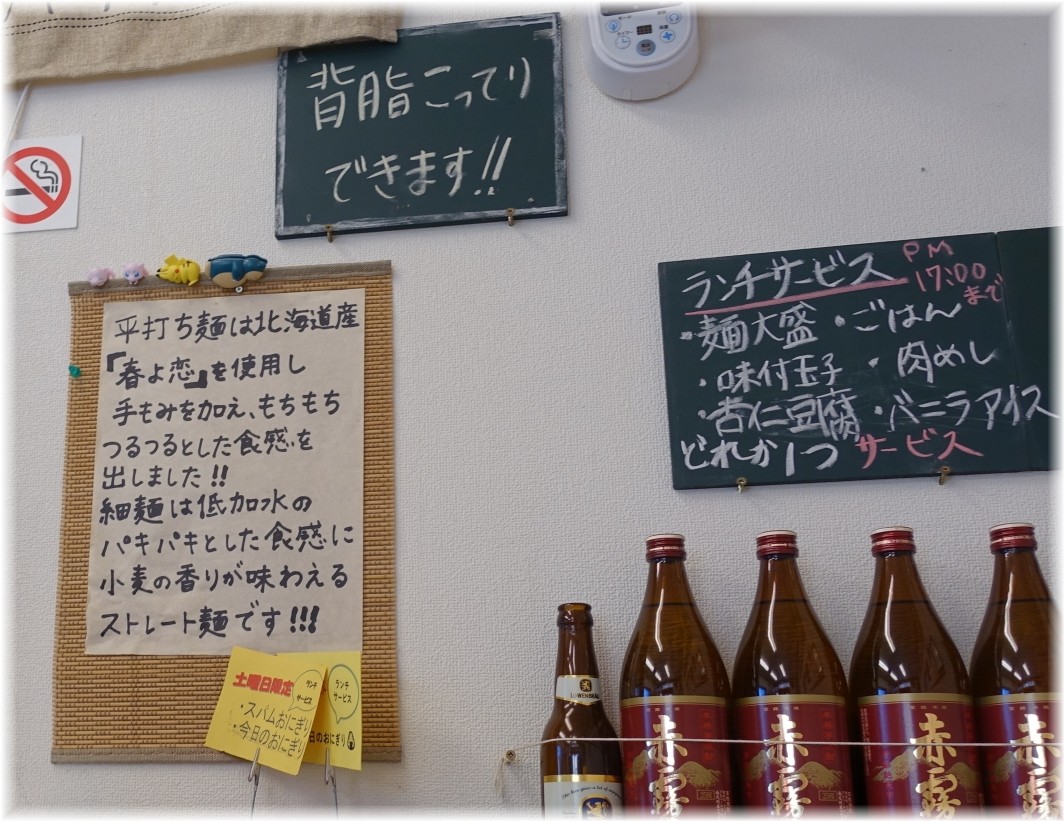 背脂こってり
できます!!
ランチサービス PM 17:00まで
・麺大盛 ・ごはん
・味付玉子 ・肉めし
・杏仁豆腐 ・バニラアイス
どれか1つ サービス
平打ち麺は北海道産
『春よ恋』を使用し
手もみを加え、もちもち
つるつるとした食感を
出しました!!
細麺は低加水の
パキパキとした食感に
小麦の香りが味わえる
ストレート麺です!!!
土曜日限定
ランチ
サービス
・スパムおにぎり
・今日のおにぎり
ランチ
サービス
日のおにぎり
LÖWENBRÄU
赤霧
赤霧
赤霧
赤霧